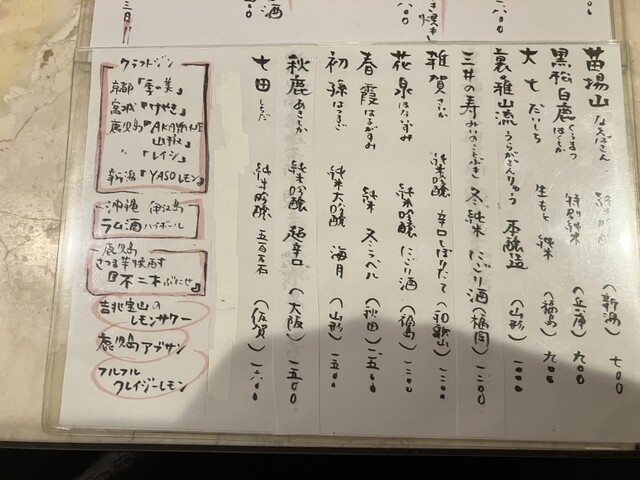 苗場山 なえばさん 純米吟醸 (新潟) 七〇〇
黒松白鹿 くろまつはくしか 特別純米 (兵庫) 九〇〇
大七 だいしち 生もと 純米 (福島) 九〇〇
裏雅山流 うらがさんりゅう 本醸造 (山形) 一〇〇〇
三井の寿 みいのことぶき 冬純米 にごり酒 (福岡) 一二〇〇
雑賀 さいか 純米吟醸 辛口しぼりたて (和歌山) 一二〇〇
花泉 はないずみ 純米吟醸 にごり酒 (福島) 一二〇〇
春霞 はるがすみ 純米 冬ラベル (秋田) 一五〇〇
初孫 はつまご 純米大吟醸 海月 (山形) 一五〇〇
秋鹿 あきしか 純米吟醸 超辛口 (大阪) 一五〇〇
七田 しちだ 純米吟醸 五百万石 (佐賀) 一六〇〇
クラフトジン
京都「季の美」
宮城「けやき」
鹿児島「AKAYANE
山椒」
〃「レイジ」
新潟「YASOレモン」
沖縄 伊江島
ラム酒ハイボール
鹿児島
さつま芋焼酎
『不二才 ぶにせ』
吉兆宝山の
レモンサワー
鹿児島アブサン
フルフル
クレイジーレモン